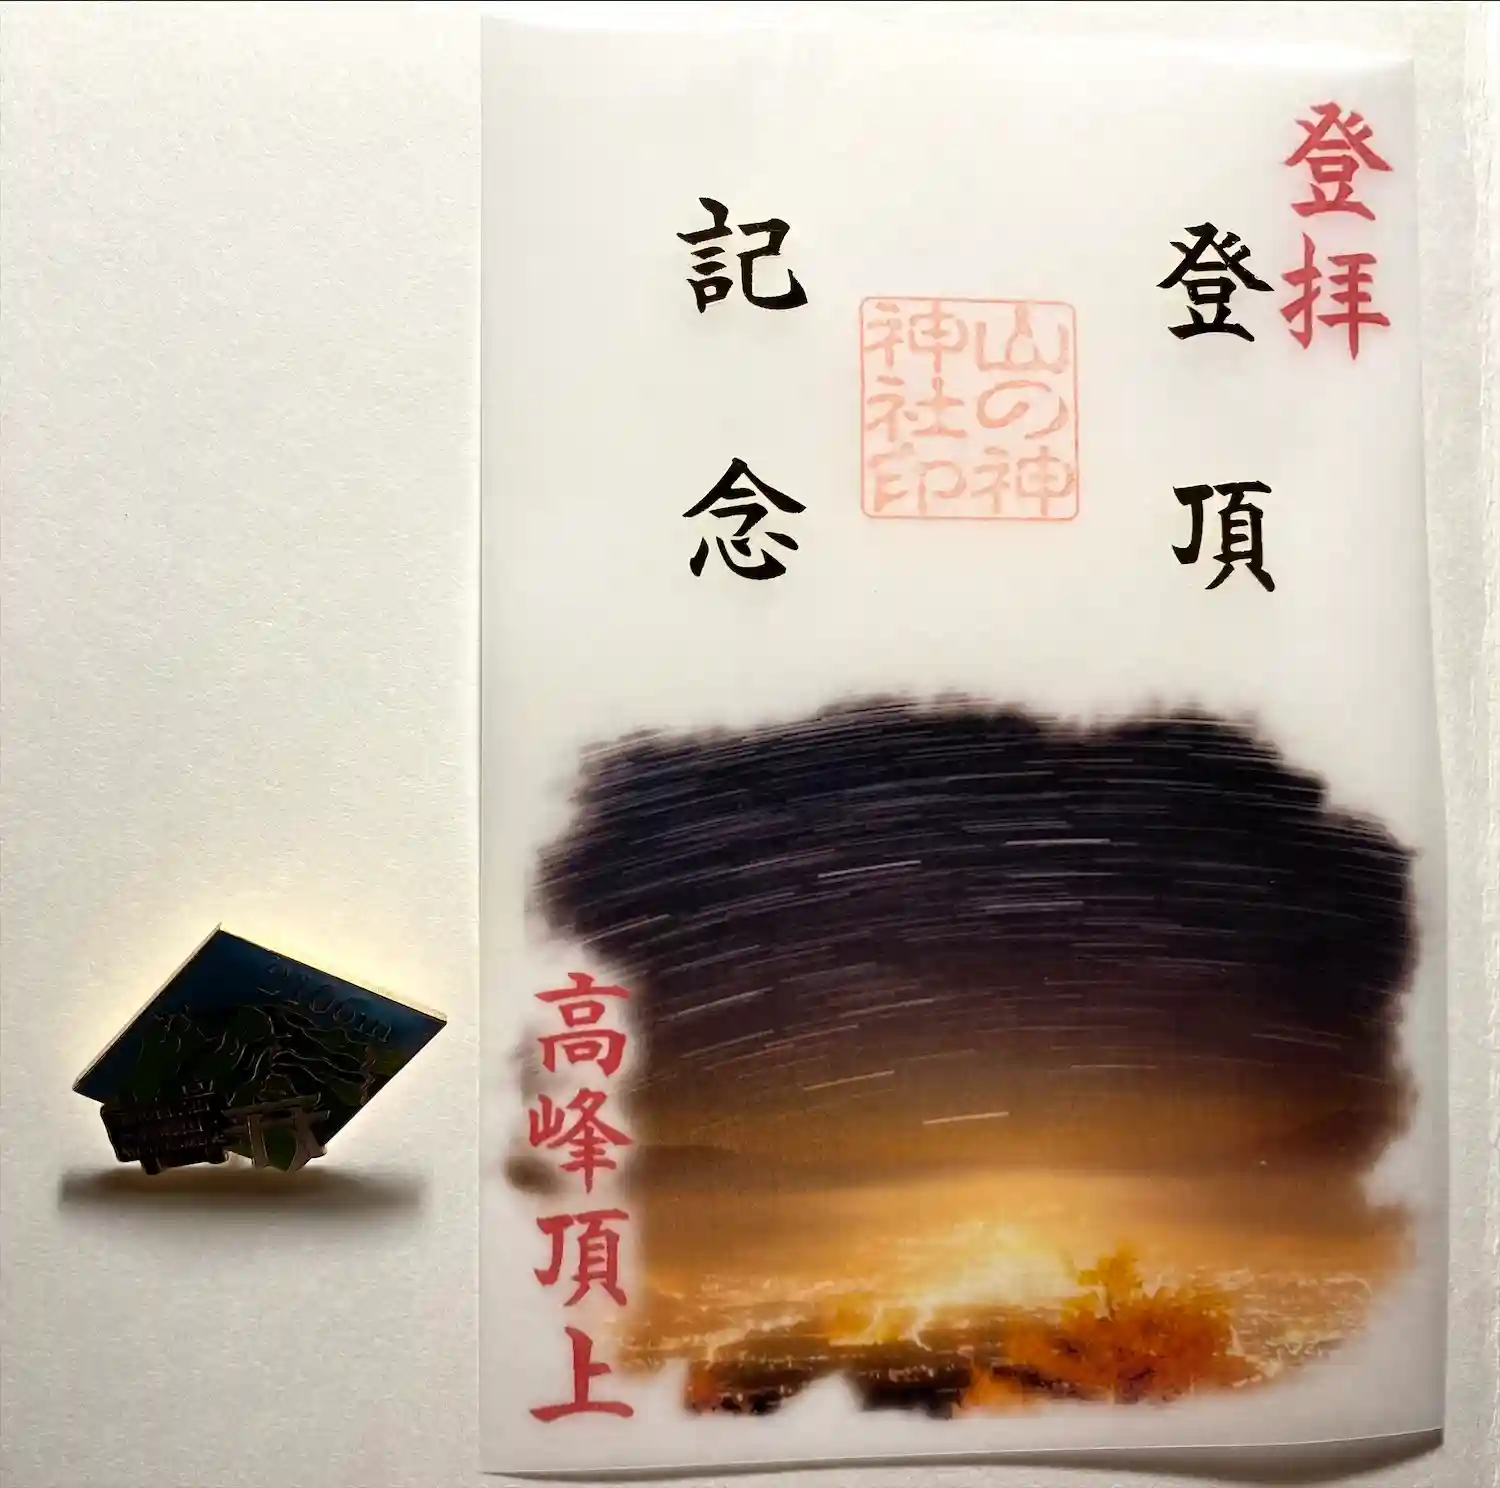 登拝
登頂
山の神
神社印
記念
高峰頂上
2100m